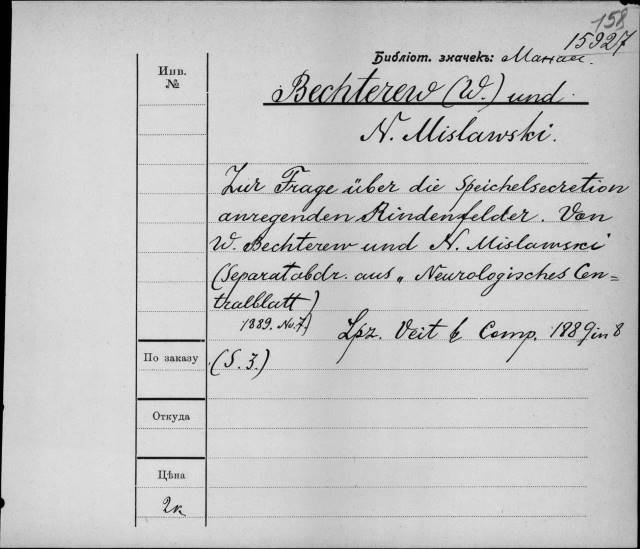 158
15927
Библіот. значекъ: Манас.
Инв.
№
Bechterew (W.) und
N. Mislawski.
Zur Frage über die Speichelsecretion
anregenden Rindenfelder. Von
W. Bechterew und N. Mislawski
(Separatabdr. aus „Neurologisches Cen=
tralblatt)
1889. No. 7.)
Lpz. Veit & Comp. 1889 in 8
По заказу
(S. 3.)
Откуда
Цѣна
2к